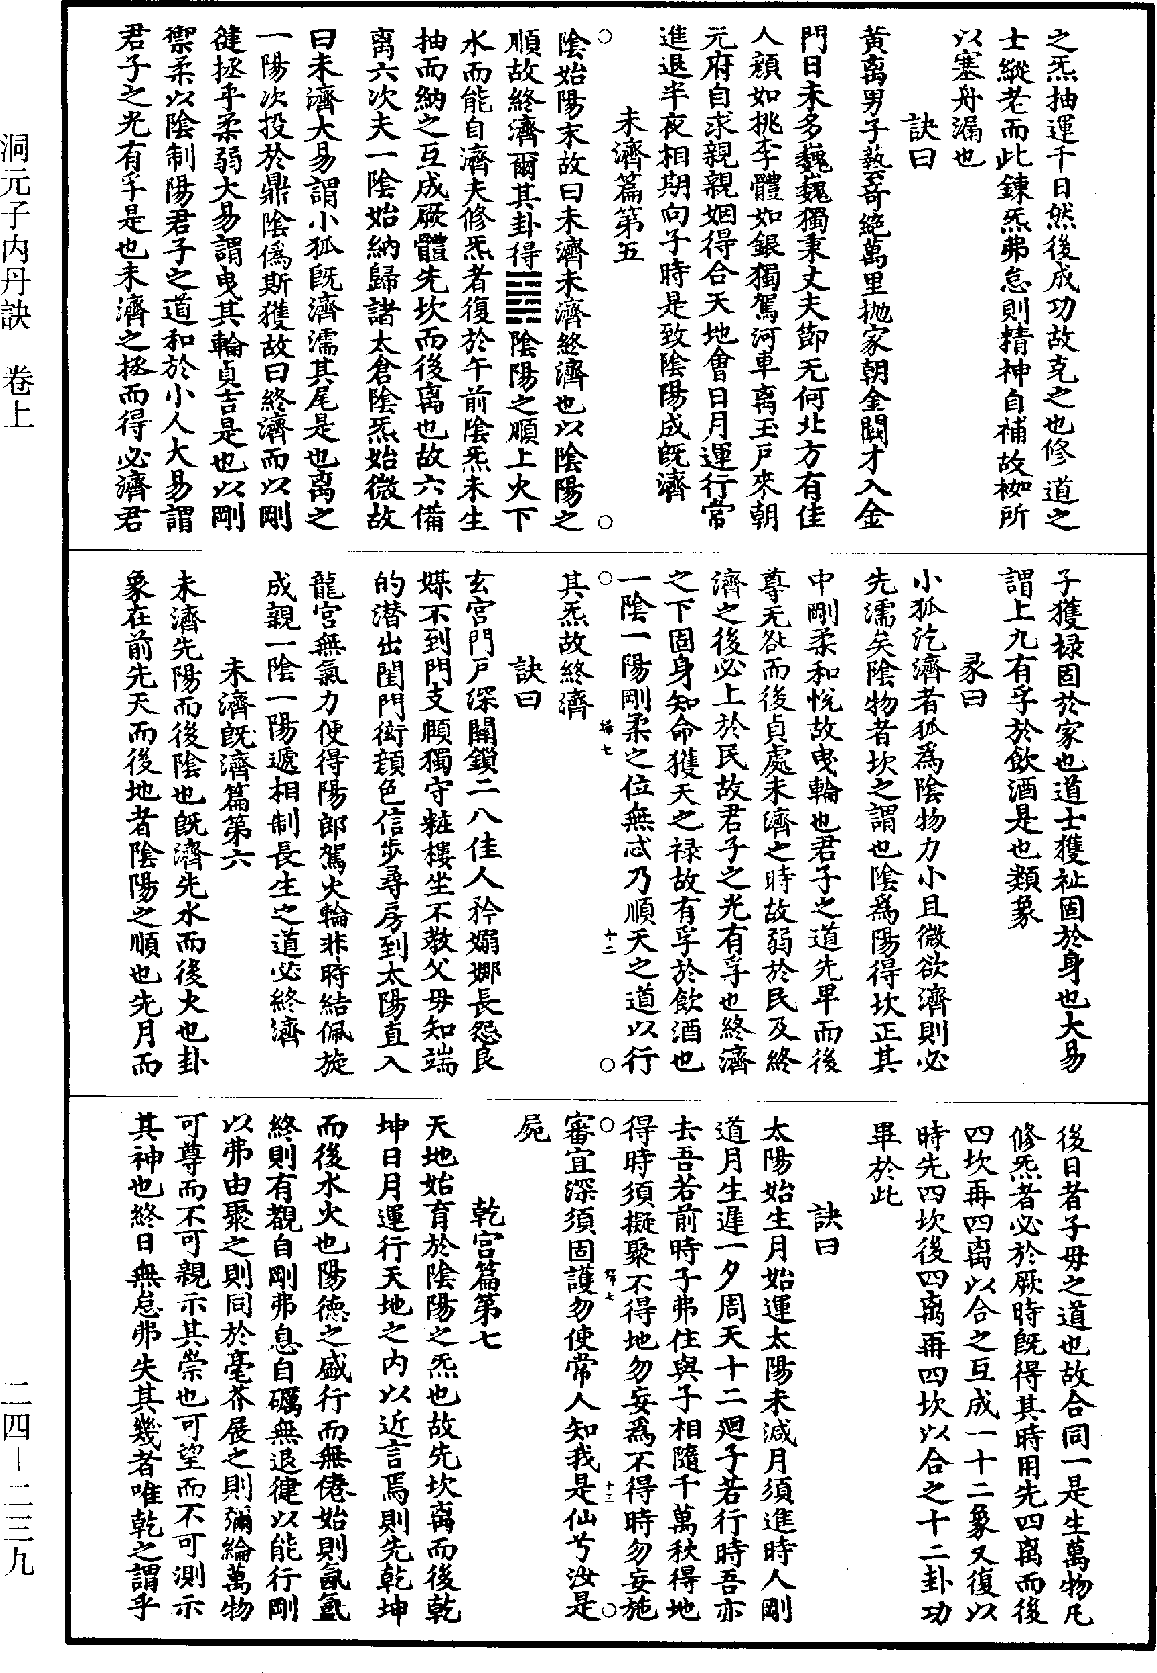 之炁抽運千日然後成功故克之也修道之
士縱老而此鍊炁弗怠則精神自補故枷所
以塞舟漏也
訣曰
黃离男子藝奇絕萬里拋家朝金闕才入金
門日未多巍巍獨秉丈夫節无何北方有佳
人顏如挑李體如銀獨駕河車离玉戶來朝
元府自求親親姻得合天地會日月運行常
進退半夜相期向子時是致陰陽成旣濟
未濟篇第五
陰始陽末故曰未濟未濟終濟也以陰陽之
順故終濟爾其卦得䷿陰陽之順上火下
水而能自濟夫修炁者復於午前陰炁未生
抽而納之互成厥體先坎而後离也故六備
离六次夫一陰始納歸諸太倉陰炁始微故
曰未濟大易謂小狐旣濟濡其尾是也离之
一陽次投於鼎陰僞斯獲故曰終濟而以剛
徤拯乎柔弱大易謂曳其輪貞吉是也以剛
禦柔以陰制陽君子之道和於小人大易謂
君子之光有孚是也未濟之拯而得必濟君
子獲祿固於家也道士獲祉固於身也大易
謂上九有孚於飲酒是也類象
彖曰
小狐汔濟者狐爲陰物力小且微欲濟則必
先濡矣陰物者坎之謂也陰爲陽得坎正其
中剛柔和悅故曳輪也君子之道先早而後
尊无咎而後貞處未濟之時故弱於民及終
濟之後必上於民故君子之光有孚也終濟
之下固身知命獲天之祿故有孚於飲酒也
一陰一陽剛柔之位無忒乃順天之道以行
其炁故終濟
訣曰
玄宮門戶深關鎖二八佳人矜嫋娜長怨良
媒不到門支頤獨守粧樓坐不教父母知端
的潛出閨門衒顏色信步尋房到太陽直入
龍宮無氣力便得陽郎駕火輪非時結佩旋
成親一陰一陽遞相制長生之道必終濟
未濟旣濟篇第六
未濟先陽而後陰也旣濟先水而後火也卦
象在前先天而後地者陰陽之順也先月而
後日者子母之道也故合同一是生萬物凡
修炁者必於厥時旣得其時用先四离而後
四坎再四离以合之互成一十二象又復以
時先四坎後四离再四坎以合之十二卦功
畢於此
訣曰
太陽始生月始運太陽未減月須進時人剛
道月生遲一夕周天十二廻子若行時吾亦
去吾若前時子弗住與子相隨千萬秋得地
得時須擬聚不得地勿妄爲不得時勿妄施
審宜深須固護勿使常人知我是仙兮汝是
屍
乾宮篇第七
天地始育於陰陽之炁也故先坎离而後乾
坤日月運行天地之內以近言焉則先乾坤
而後水火也陽德之盛行而無倦始則氤氳
終則有觀自剛弗息自礪無退徤以能行剛
以弗由聚之則同於毫芥展之則彌綸萬物
可尊而不可親示其崇也可望而不可測示
其神也終日無怠弗失其幾者唯乾之謂乎
洞元子內丹訣　卷上
二四—二三九